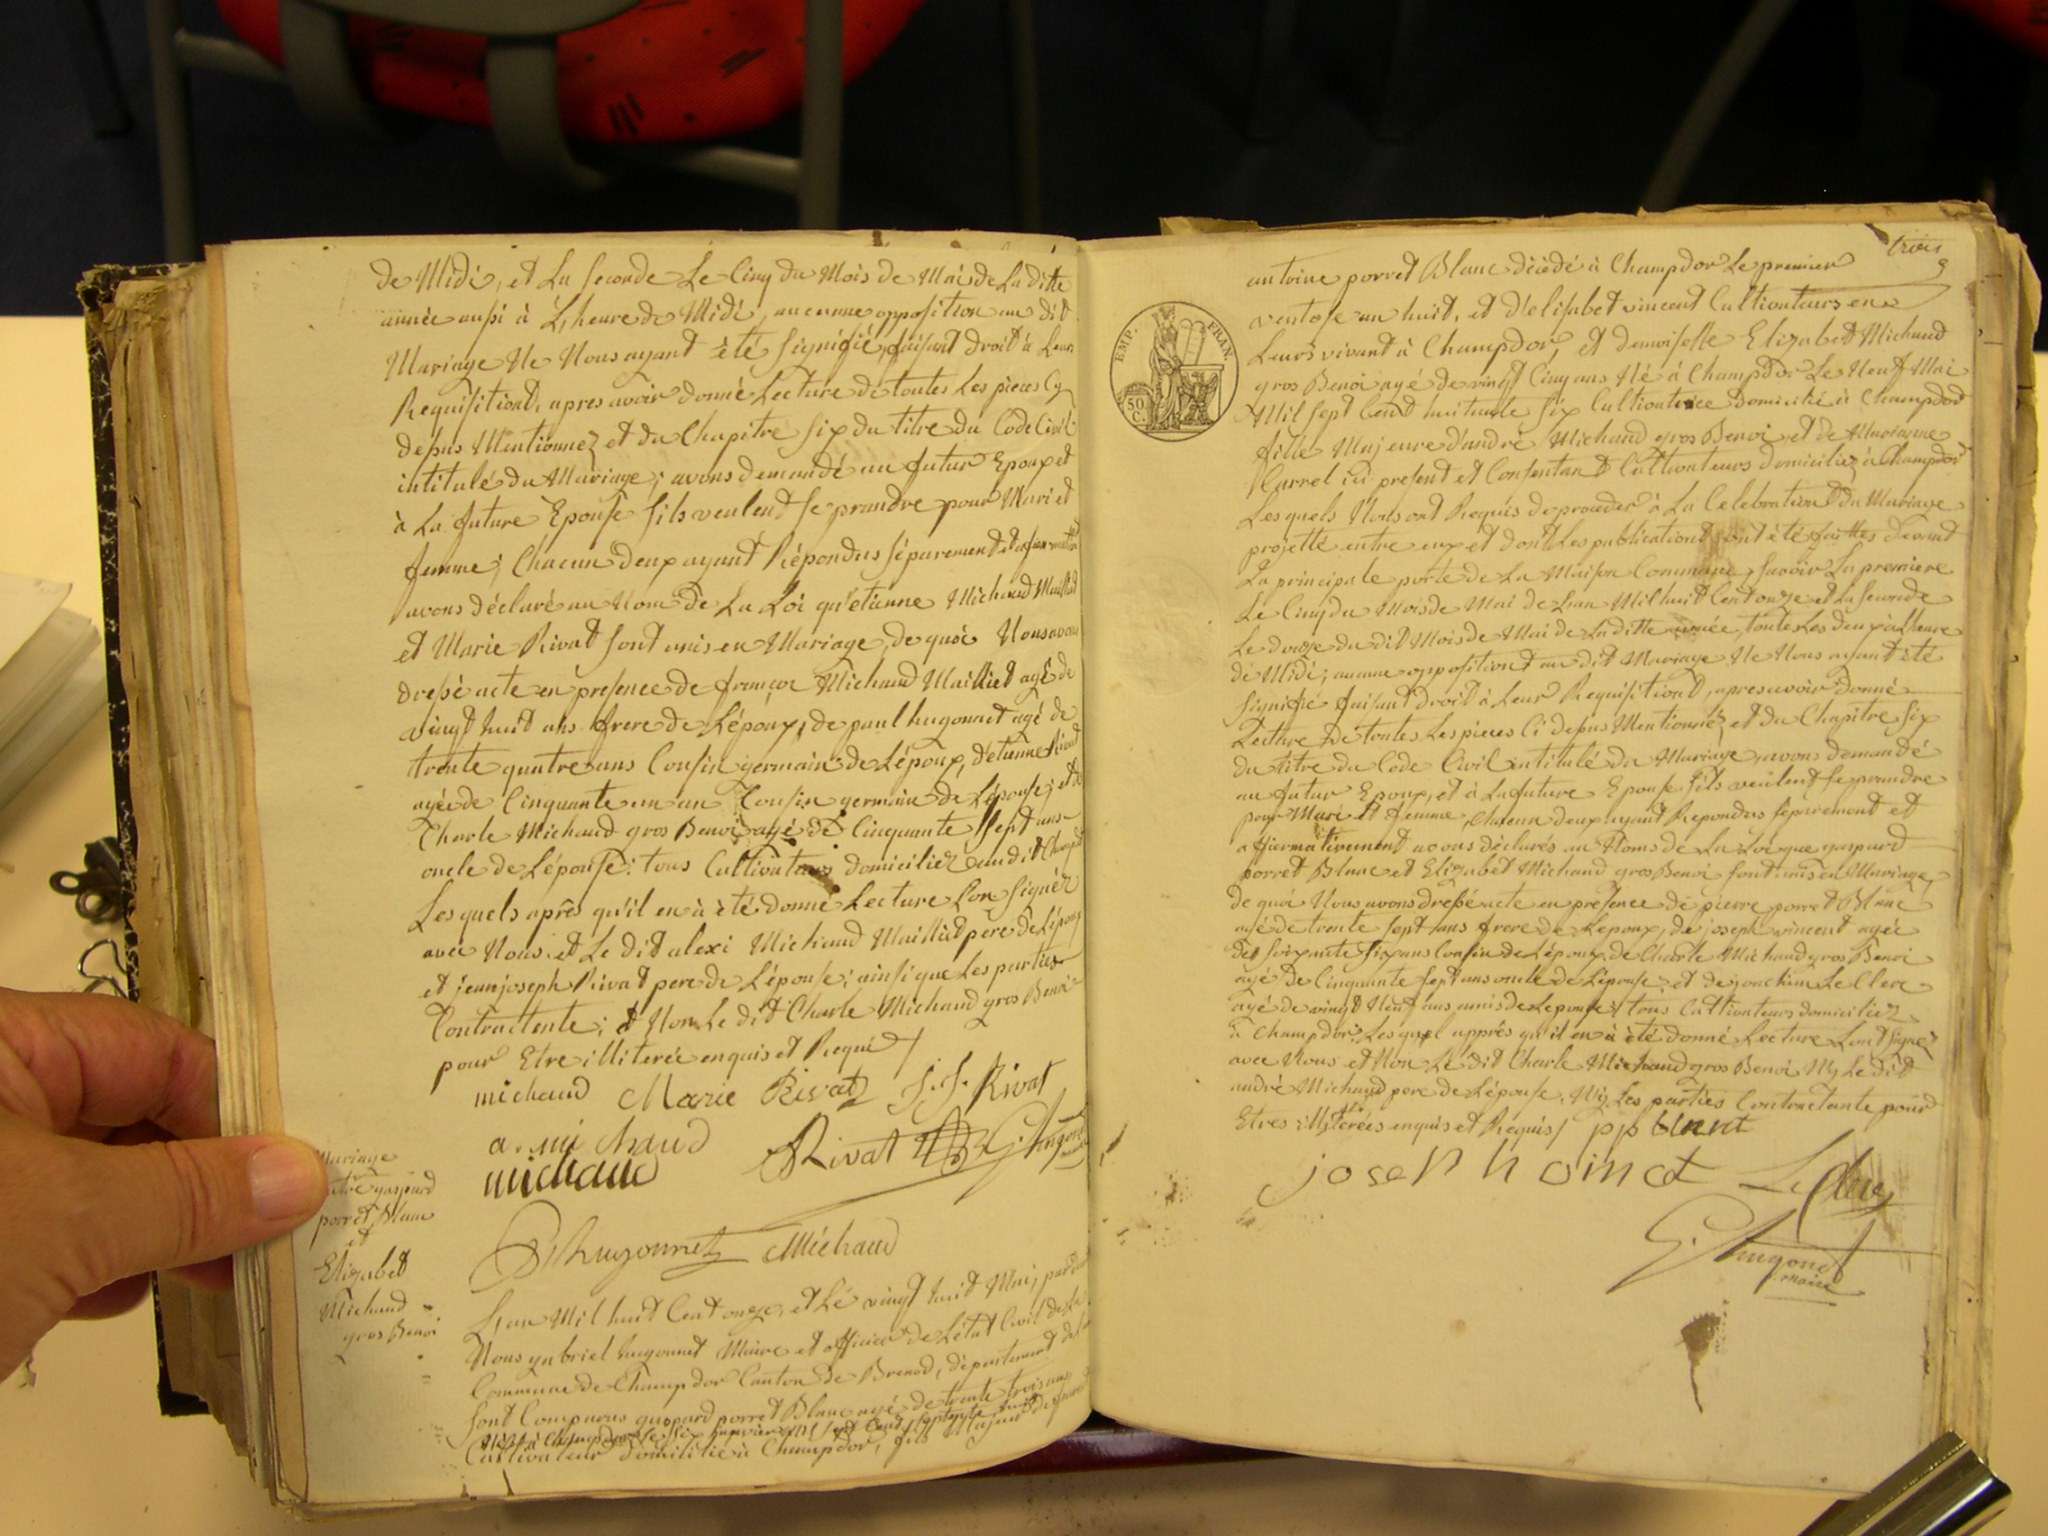 de Midi, et La seconde Le Cinq du Mois de Mai de La ditte
année aussi à L'heure de Midi, aucunne opposition au dit
Mariage Ne Nous ayant été signifié, faisant droit à Leurs
Requisitiond, apres avoir donné Lecture de toutes Les pieces Cy
depus Mentionnez et du Chapitre six du titre du Code Civil
intitulé du Mariage; avons demandé au futur Epoux et
à La future Epouse sils veulent se prandre pour Mari et
femme; Chacun deux ayant Répondus séparement et
avons déclaré au Nom de La Loi qu'etienne Michaud Mailliet
et Marie Rivat sont unis en Mariage, de quoi Nous avons
dressé acte en presence de françoi Michaud Mailliet agé de
vingt huit ans frere de L'époux, de paul hugonnet agé de
trente quatre ans Cousin germain de L'époux, d'etienne Rivat
agée de Cinquante un an Cousin germain de L'épouse; et de
Charle Michaud gros Benoi agé de Cinquante sept ans
oncle de L'épouse: tous Cultivateurs domiciliez audit Champdor
Les quels aprês qu'il en à été donné Lecture L'on signéz
avec Nous et Le dit alexi Michaud Mailliet pere de L'époux
et jean joseph Rivat pere de L'épouse; ainsi que Les parties
Contractente; et Non Le dit Charle Michaud gros Benoi
pour Etre illiterée enquis et Requi
michaud Marie Rivat J. J. Rivat
a. mi chaud
michaud Rivat G. hugonet
P hugonnet Michaud
Mariage
entre gaspard
porret Blanc
et
Elizabet
Michaud
gros Benoi
L'an Mil huit Cent onze, et Lé vingt huit Mai, par devant
Nous gabriel hugonnet Maire et officier de L'état Civil de La
Commune de Champdor Canton de Brenod, département de
sont Comparus gaspard porret Blanc agé de trente trois ans
Né à Champdor Le six janvier Mil sept Cent septante huit
Cultivateur domicilié à Champdor, fils Majeur de feu
trois
antoine porret Blanc décédé à Champdor Le premier
ventose an huit, et d'elisabet vincent Cultivateurs en
Leurs vivant à Champdor, et demoiselle Elizabet Michaud
gros Benoi agé de vingt Cinq ans Né à Champdor Le Neuf Mai
Mil sept Cent huitante six Cultivatrice domicilié à Champdor
fille Majeure d'andré Michaud gros Benoi et de Marianne
Carrel ici present et Consentant Cultivateurs domiciliez à Champdor
Les quels Nous ont Requis de proceder à La Celebration du Mariage
projetté entre eux et dont Les publications ont été faittes devant
La principale porte de La Maison Commune, savoir La premiere
Le Cinq du Mois de Mai de L'an Mil huit Cent onze et La seconde
Le douze du dit Mois de Mai de La ditte année, toute Les deux à L'heure
de Midi; aucune opposition au dit Mariage Ne Nous ayant été
signifié faisant droit à Leur Requisitiond, apres avoir donné
Lecture de toutes Les pieces Ci depus Mentionnéz, et du Chapitre six
du titre du Code Civil intitulé du Mariage, avons demandé
au futur Epoux, et à La future Epouse sils veulent se prandre
pour Mari et femme, Chacun deux ayant Repondus séparement et
affirmativement avons déclarés au Noms de La Loi que gaspard
porret Blanc et Elizabet Michaud gros Benoi sont unis en Mariage,
de quoi Nous avons dressé acte en présence de pierre porret Blanc
agé de trente sept ans frere de L'epoux, de joseph vincent agée
de soixante six ans Cousin de L'époux, de Charle Michaud gros Benoi
agé de Cinquante sept ans oncle de L'épouse et de joachim Le Clerc
agé de vingt Neuf ans amis de L'epouse; tous Cultivateurs domiciliez
à Champdor; Les quel apprés qu'il en à été donné Lecture L'ont signéz
avec Nous et Non Le dit Charle Michaud gros Benoi Ny Le dit
andré Michaud pere de L'épouse, Ny Les parties Contractante pour
Etres illiterées enquis et Requis pp blanct
joseph voinct Le Clerc
G. hugonet
maire
EMP. FRAN.
50
C.